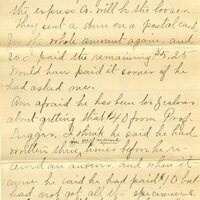 the express Co. will be the looser.
They sent a dun on a postal card
for the whole amount again, and
20 c paid the remaining $5.25
Would have paid it sooner if he
had asked me.
Am afraid he has been too zealous
about getting that $40 from Prof.
Riggs. I think he said he had
written three times before he re-
ceived an answer. and when it
came he said he had paid $10 but
had not got all the specimens